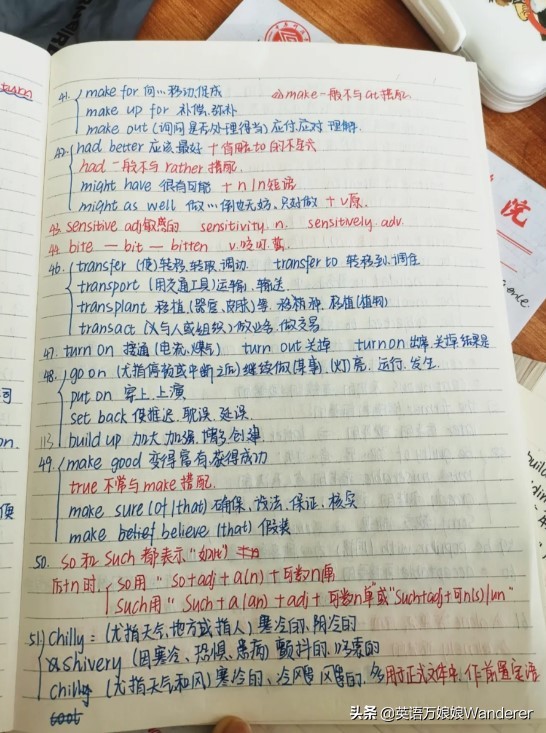 41. make for 向…移动,促成 make一般不与at搭配
make up for 补偿,弥补
make out (询问是否处理得当)应付,应对 理解.
42. had better 应该,最好 + 省略to的不定式
had 一般不与 rather 搭配.
might have 很有可能 + n/n短语
might as well 做…倒也无妨、只好做 + v原.
43. sensitive adj敏感的 sensitivity. n. sensitively. adv.
44. bite — bit — bitten v.咬,叮,蜇.
46. transfer (使)转移,转取,调动. transfer to 转移到,调任
transport (用交通工具)运输,输送.
transplant 移植(器官、皮肤)等,移植(植物)
transact (与人或组织)做业务,做交易
47. turn on 接通(电流,煤气) turn out 关掉 turn on 出席,关掉,结果是
48. go on (尤指停顿或中断之后)继续做(某事),(灯)亮,运行,发生.
put on 穿上,上演
set back 使推迟、耽误、延误.
113. build up 加大,加强,增多,创建
49. make good 变得富有,获得成功
true 不常与make搭配.
make sure (of/that) 确保、设法、保证、核实
make belief believe (that) 假装
50. so 和 such 都表示"如此"
后+n时, so用" so+adj+a(n)+可数n单
such用" such+a(an)+adj+可数n单"或"such+adj+可n(s)/un"
51. chilly: (尤指天气,地方或指人)寒冷的,阴冷的
shivery (因寒冷、恐惧、患病)颤抖的,哆嗦的
chill (尤指天气和风)寒冷的、冷飕飕的. 多用于正式文体中,作前置定语
cool
turn
头条 @英语万娘娘Wanderer
院